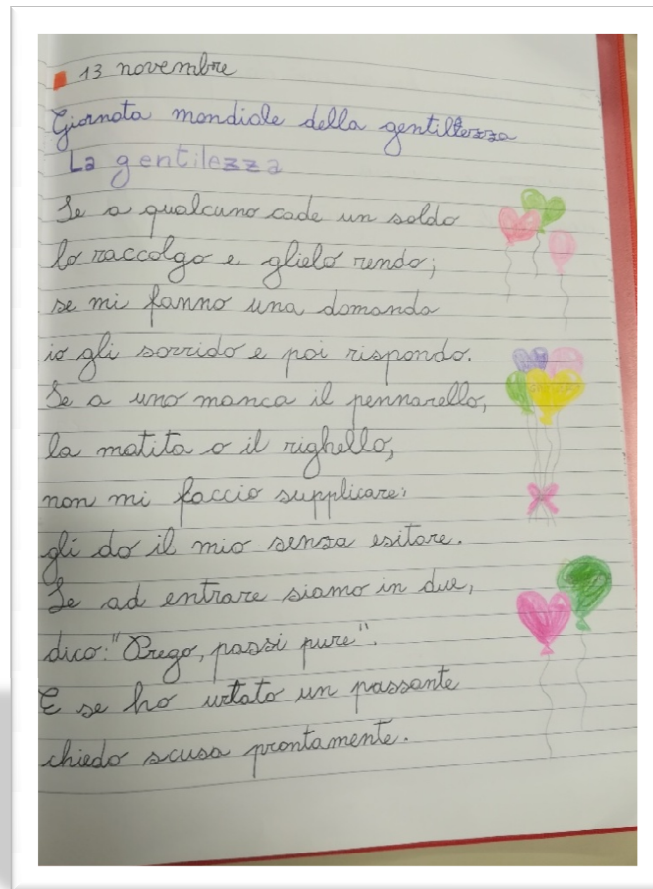 13 novembre
Giornata mondiale della gentillezza
La gentilezza
Se a qualcuno cade un soldo
lo raccolgo e glielo rendo;
se mi fanno una domanda
io gli sorrido e poi rispondo.
Se a uno manca il pennarello,
la matita o il righello,
non mi faccio supplicare:
gli do il mio senza esitare.
Se ad entrare siamo in due,
dico: "Prego, passi pure".
E se ho urtato un passante
chiedo scusa prontamente.